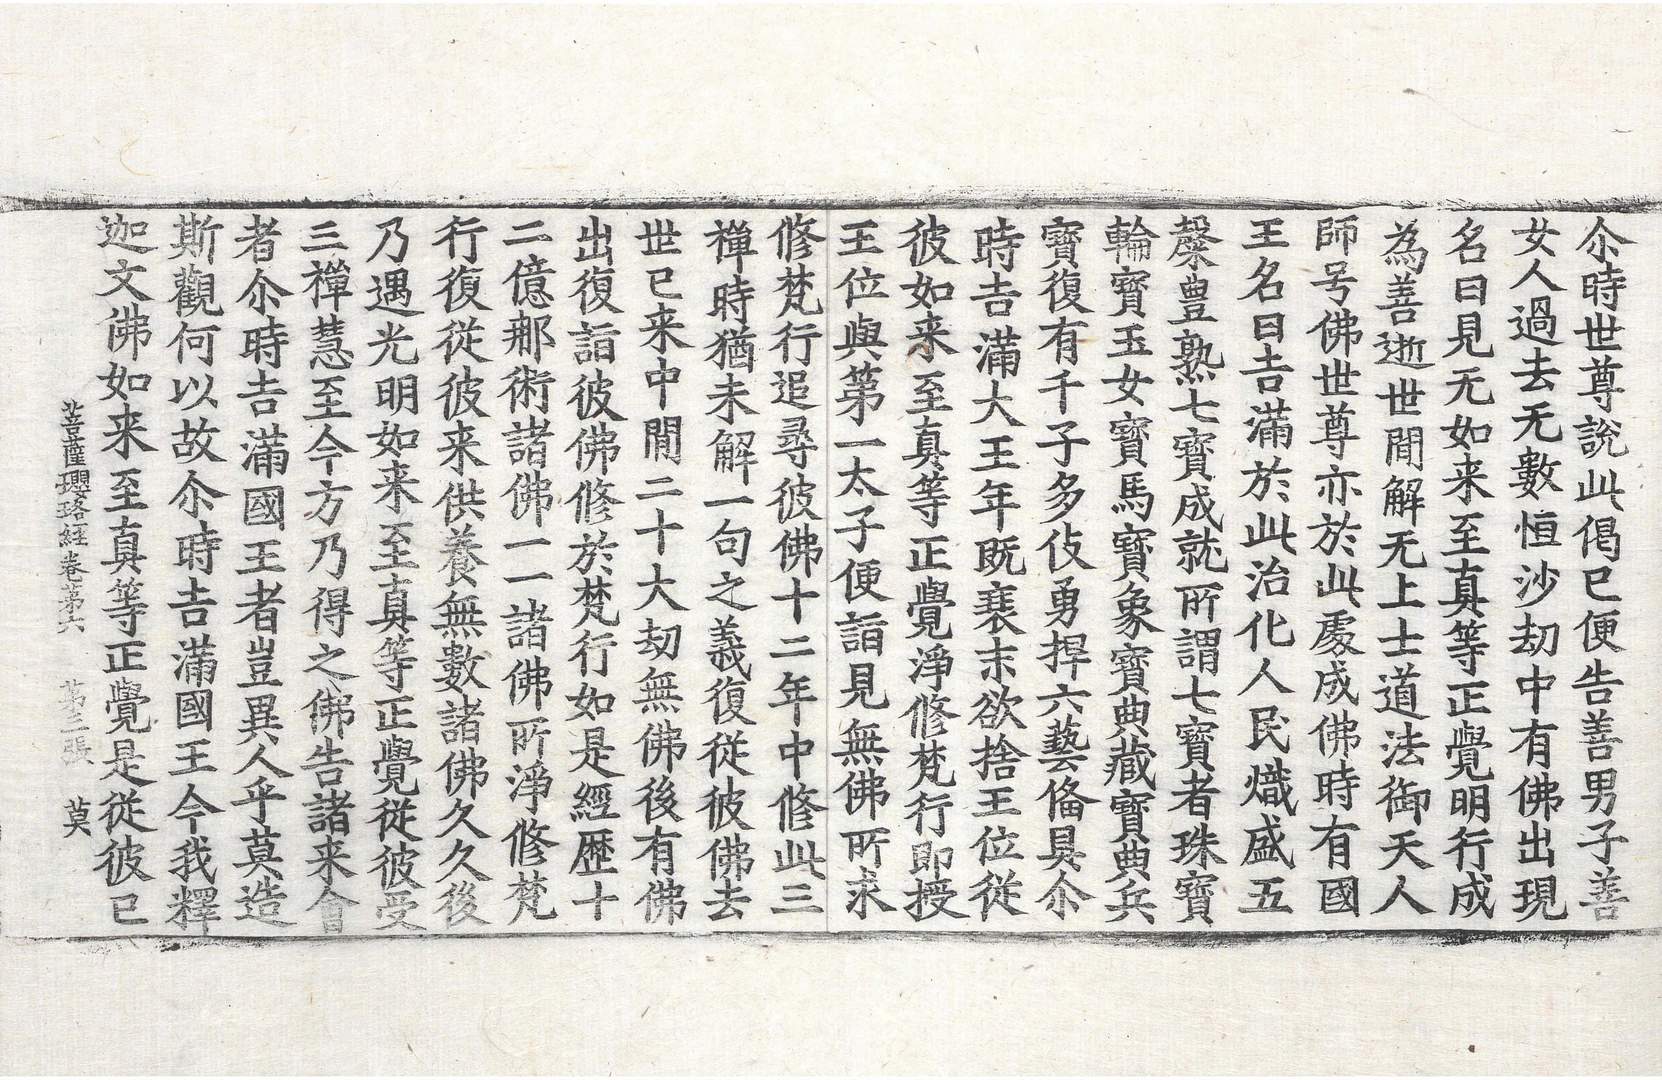 尒時世尊說此偈已便告善男子善
女人過去无數恒沙劫中有佛出現
名曰見无如来至真等正覺明行成
為善逝世間解无上士道法御天人
師号佛世尊亦於此處成佛時有國
王名曰吉滿於此治化人民熾盛五
穀豊熟七寳成就所謂七寳者珠寳
輪寳玉女寳馬寳象寳典藏寳典兵
寳復有千子多伎勇捍六藝俻具尒
時吉滿大王年既衰末欲捨王位從
彼如来至真等正覺淨修梵行即授
王位與第一太子便詣見無佛所求
修梵行追尋彼佛十二年中修此三
禪時猶未解一句之義復從彼佛去
世已来中間二十大劫無佛後有佛
出復詣彼佛修於梵行如是經歷十
二億那術諸佛一一諸佛所淨修梵
行復從彼来供養無數諸佛久久後
乃遇光明如来至真等正覺從彼受
三禪慧至今方乃得之佛告諸来會
者尒時吉滿國王者豈異人乎莫造
斯觀何以故尒時吉滿國王今我釋
迦文佛如来至真等正覺是從彼已
菩薩瓔珞経卷第六　第三張　莫